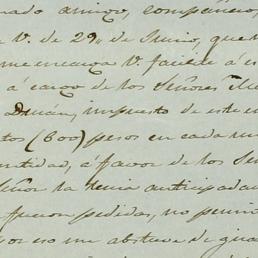 mado amigo, compañero,
V. de 29,, de Junio, que h
me encarga V. facilite á es
á cargo de los Señores
Durán, impuesto de este en
tos (600) pesos en cada me
entidad, á favor de los Señ
Señor la tenia anticipada
fueron pedidas, no permi
or eso me abstuve de gira